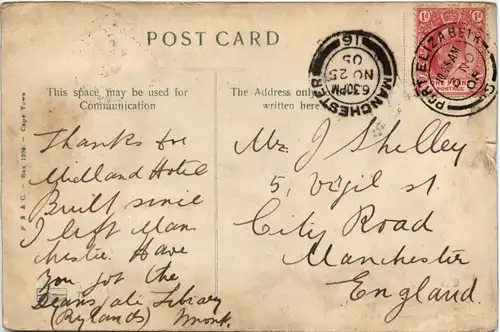 POST CARD
This space may be used for
Communication
The Address only
written here
Thanks for
Midland Hotel
Built since
I left Man
chester. Have
you got the
Library
(Rylands)
Mr J Shelley
5, Vigil st.
City Road
Manchester
England.
MANCHESTER
6.30PM
NO 25
05
16
PORT ELIZABETH
NO
1d
POSTAGE
P S & C. - Box - Cape Town